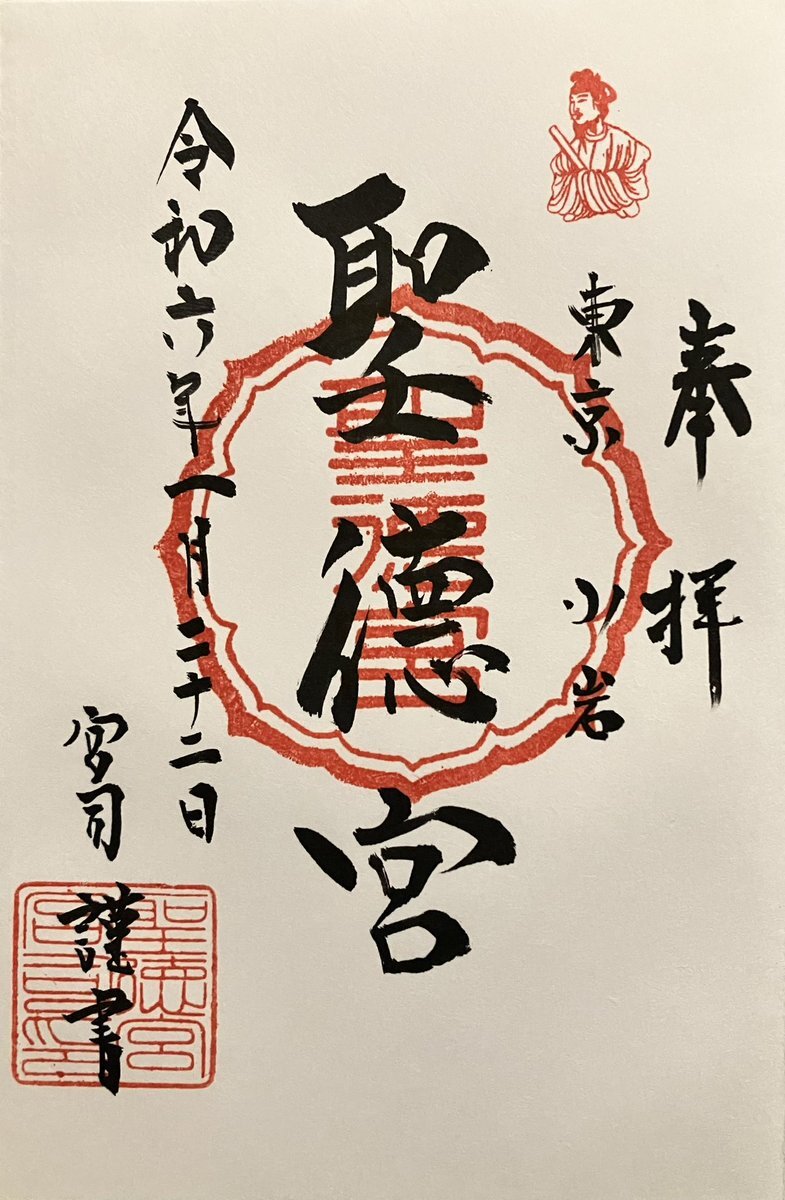 奉拝
東京 小岩
聖徳宮
聖徳宮
令和六年一月二十二日
宮司 謹書